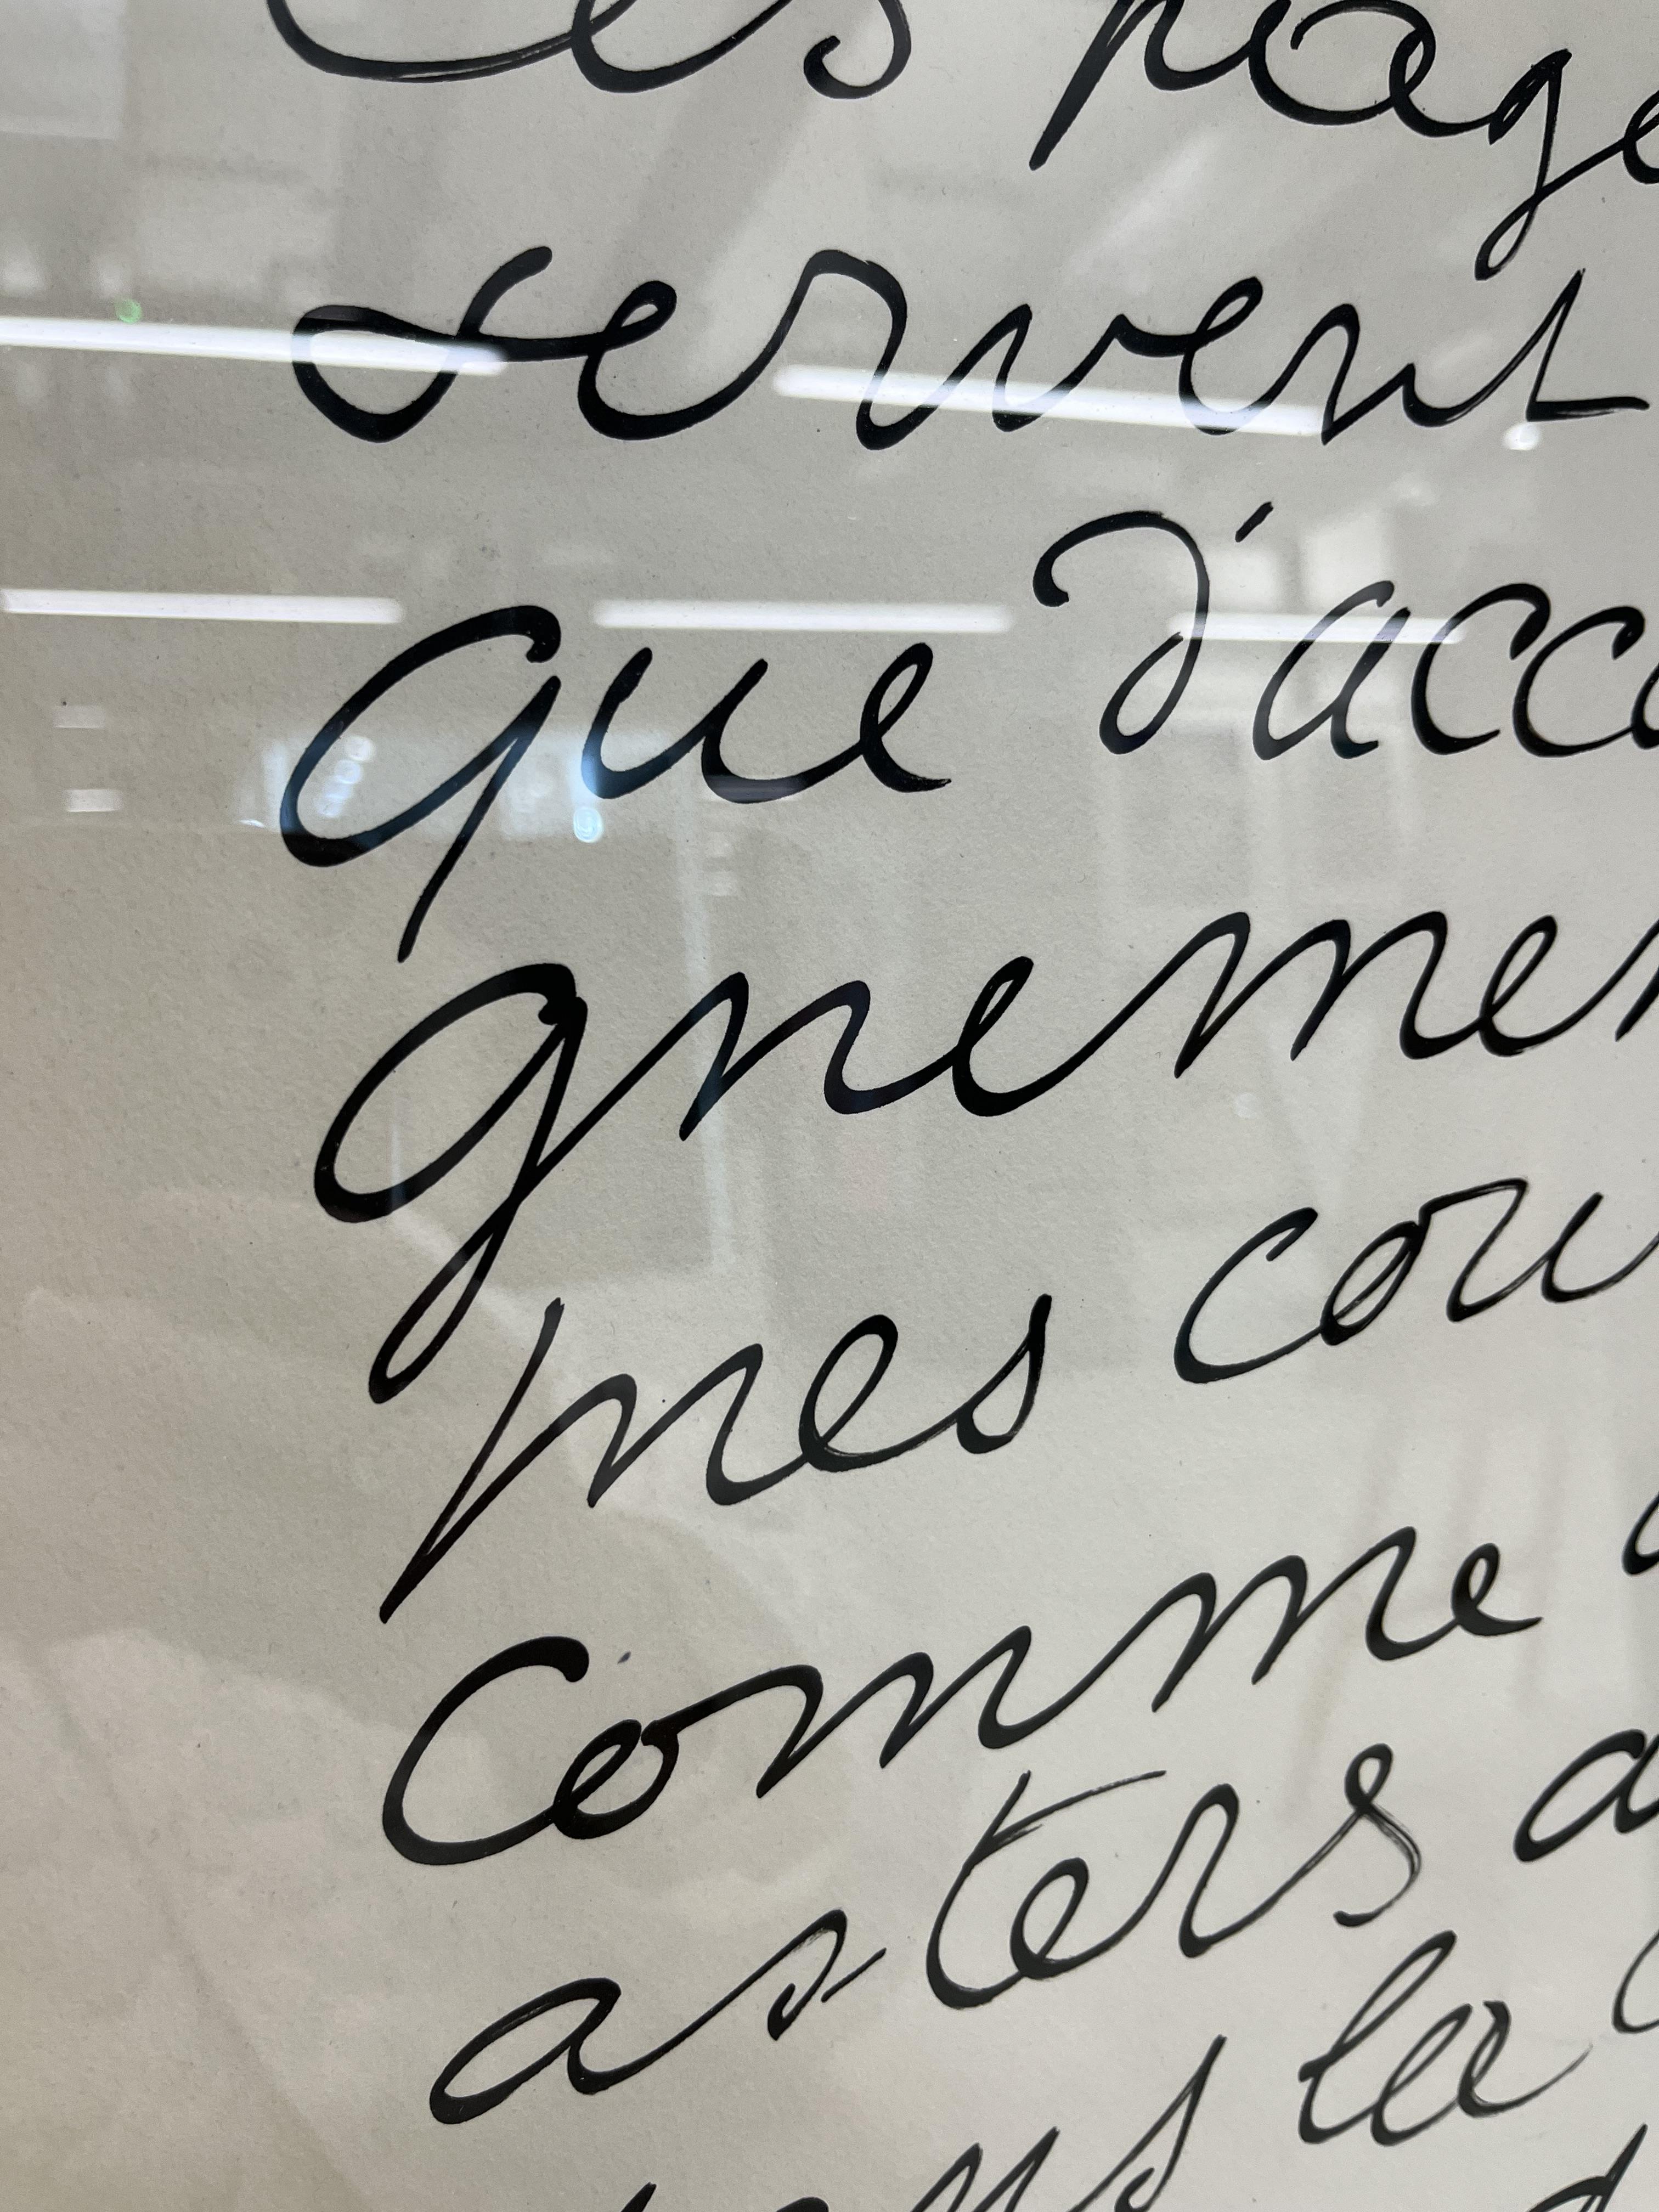 Ces page
servent
que d'acco
gnemen
mes cou
Comme
asters
la